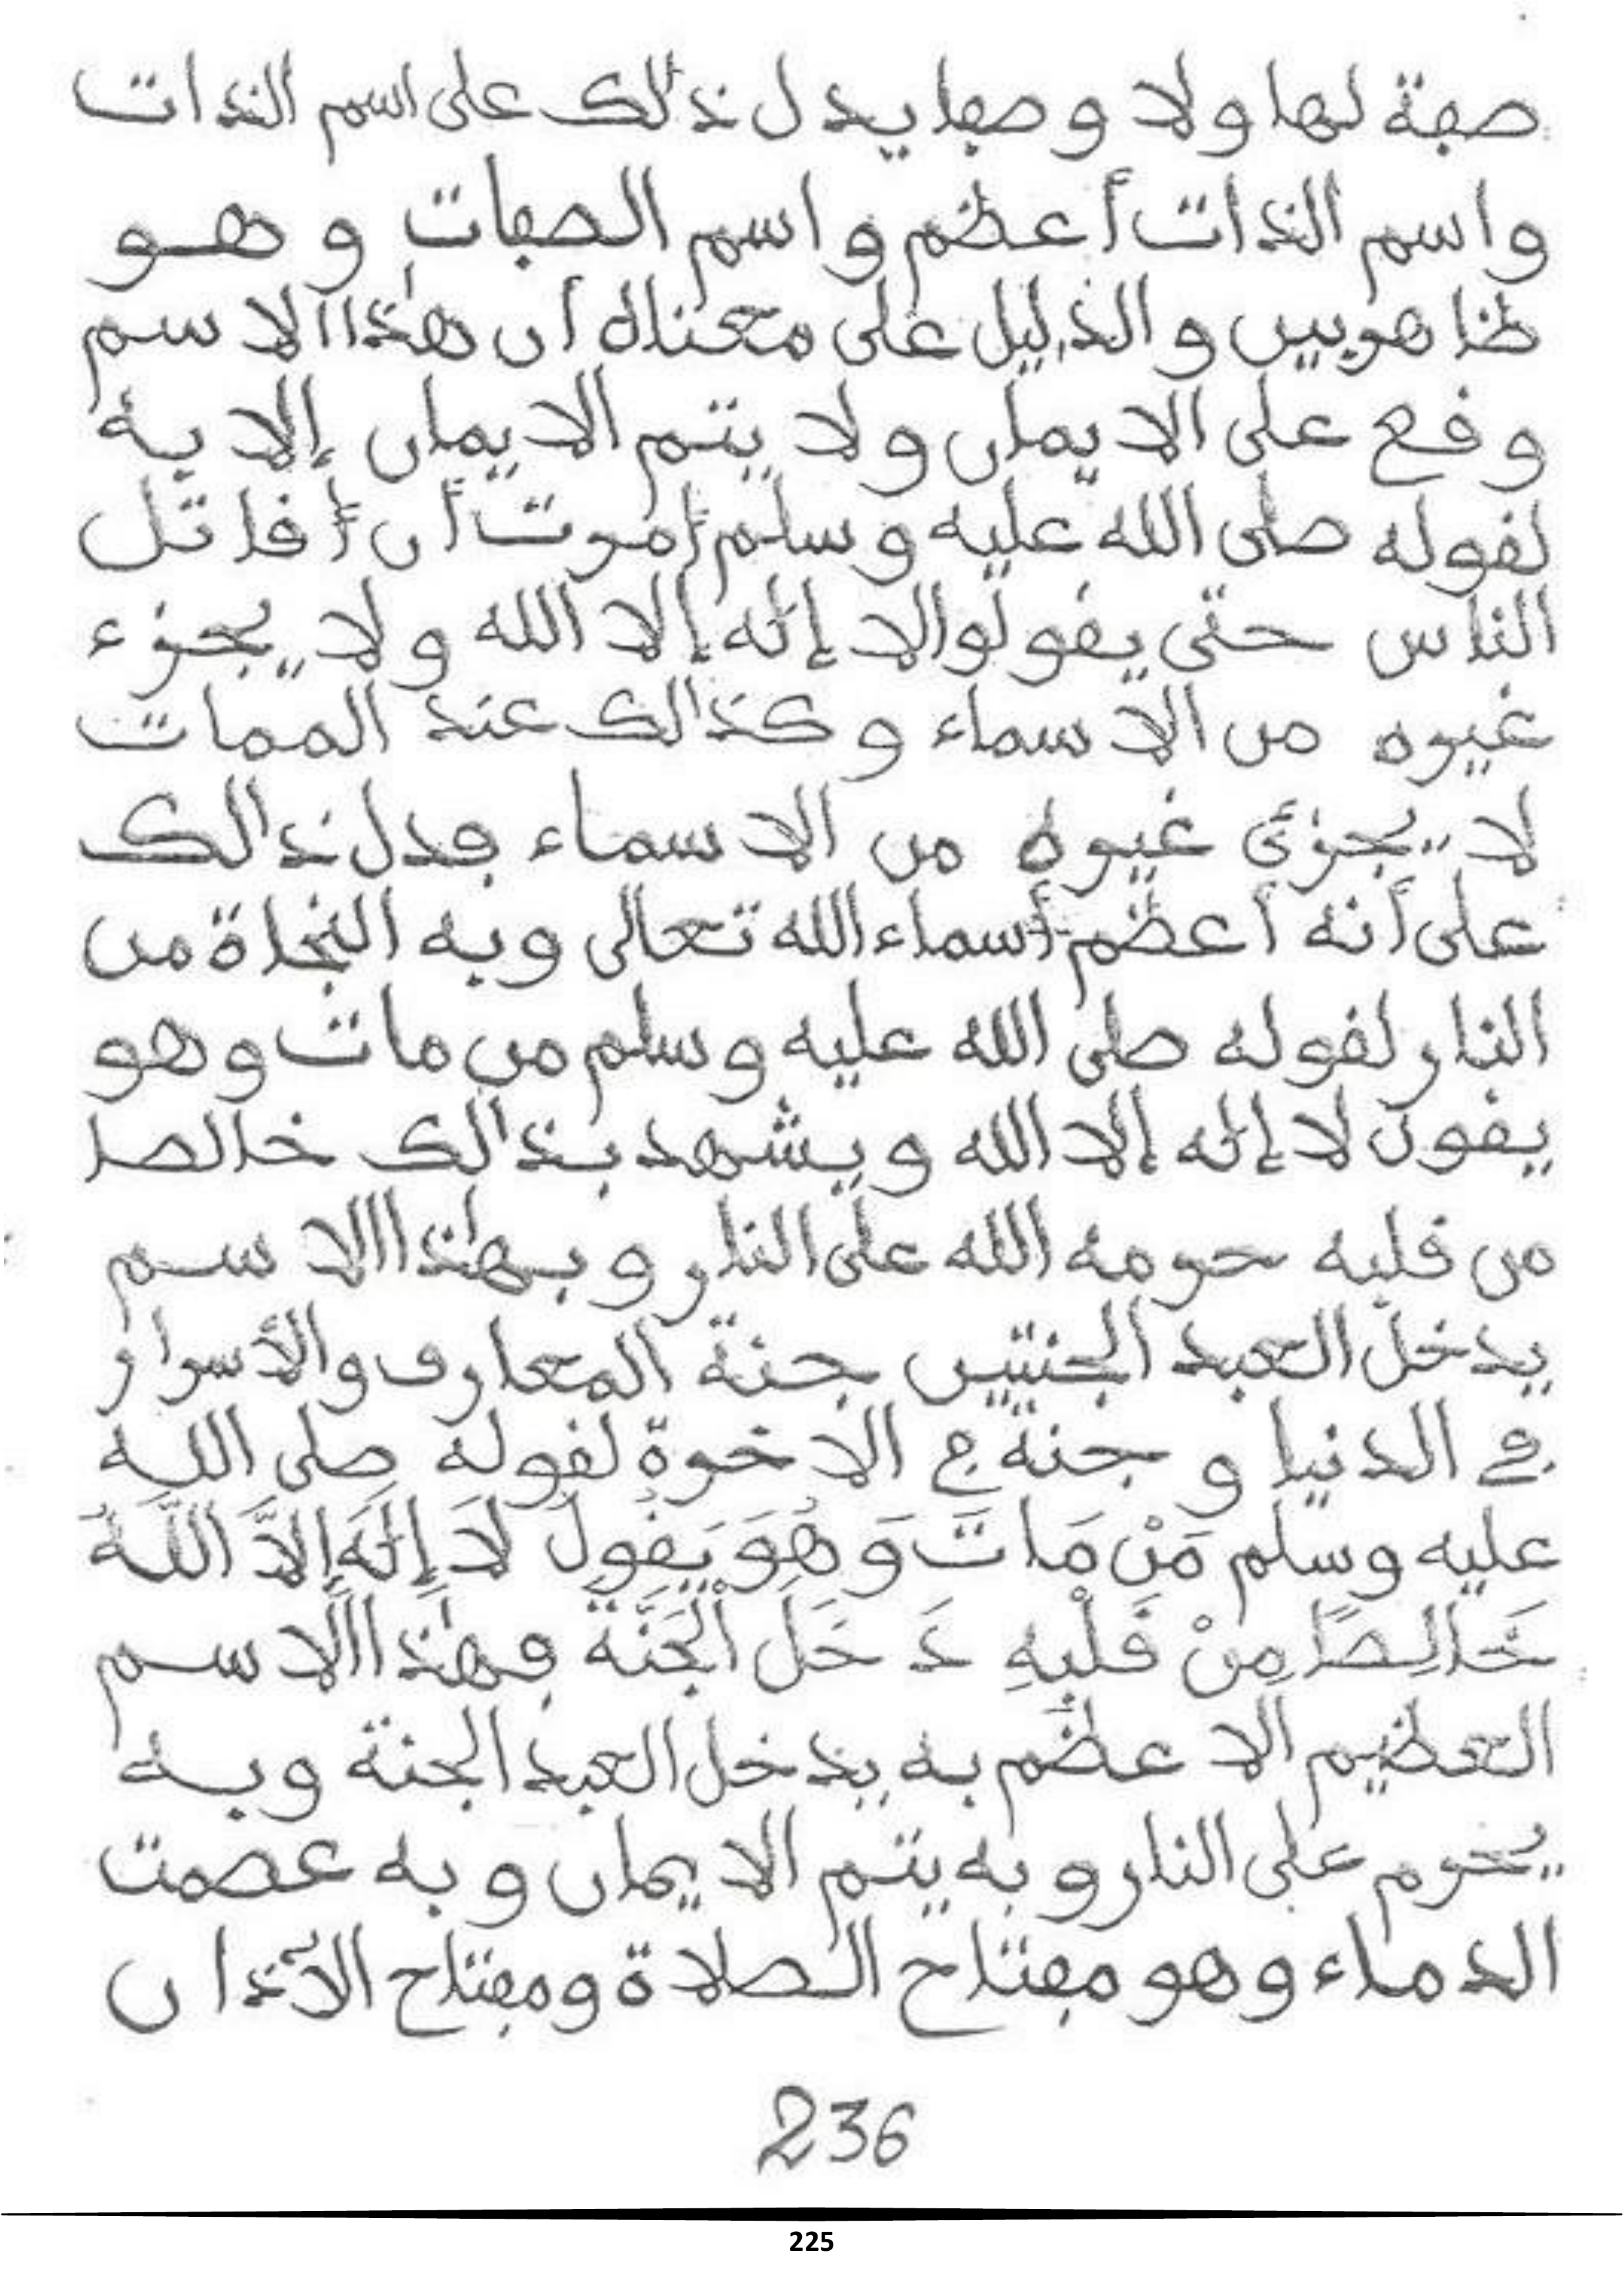 صفة لها ولا وصفا يدل ذالك على اسم الذات
واسم الذات أعظم واسم الصفات وهو
ظاهر بين والدليل على معناه أن هذا الاسم
وقع على الايمان ولا يتم الايمان إلا به
لقوله صلى الله عليه وسلم أمرت أن أقاتل
الناس حتى يقولوا لا إله إلا الله ولا يجزء
غيره من الاسماء وكذالك عند الممات
لا يجزئ غيره من الاسماء فدل ذالك
على أنه أعظم أسماء الله تعالى وبه النجاة من
النار لقوله صلى الله عليه وسلم من مات وهو
يقول لا إله إلا الله ويشهد بذالك خالصا
من قلبه حرمه الله على النار وبهذا الاسم
يدخل العبد الجنتين جنة المعارف والأسرار
في الدنيا وجنة في الاخرة لقوله صلى الله
عليه وسلم مَنْ مَاتَ وَهُوَ يَقُولُ لَا إِلَهَ إِلاَّ اللَّهُ
خَالِصًا مِنْ قَلْبِهِ دَخَلَ الْجَنَّةَ فهذا الاسم
العظيم الاعظم به يدخل العبد الجنة وبه
يحرم على النار وبه يتم الايمان وبه عصمت
الدماء وهو مفتاح الصلاة ومفتاح الآذان
236
225